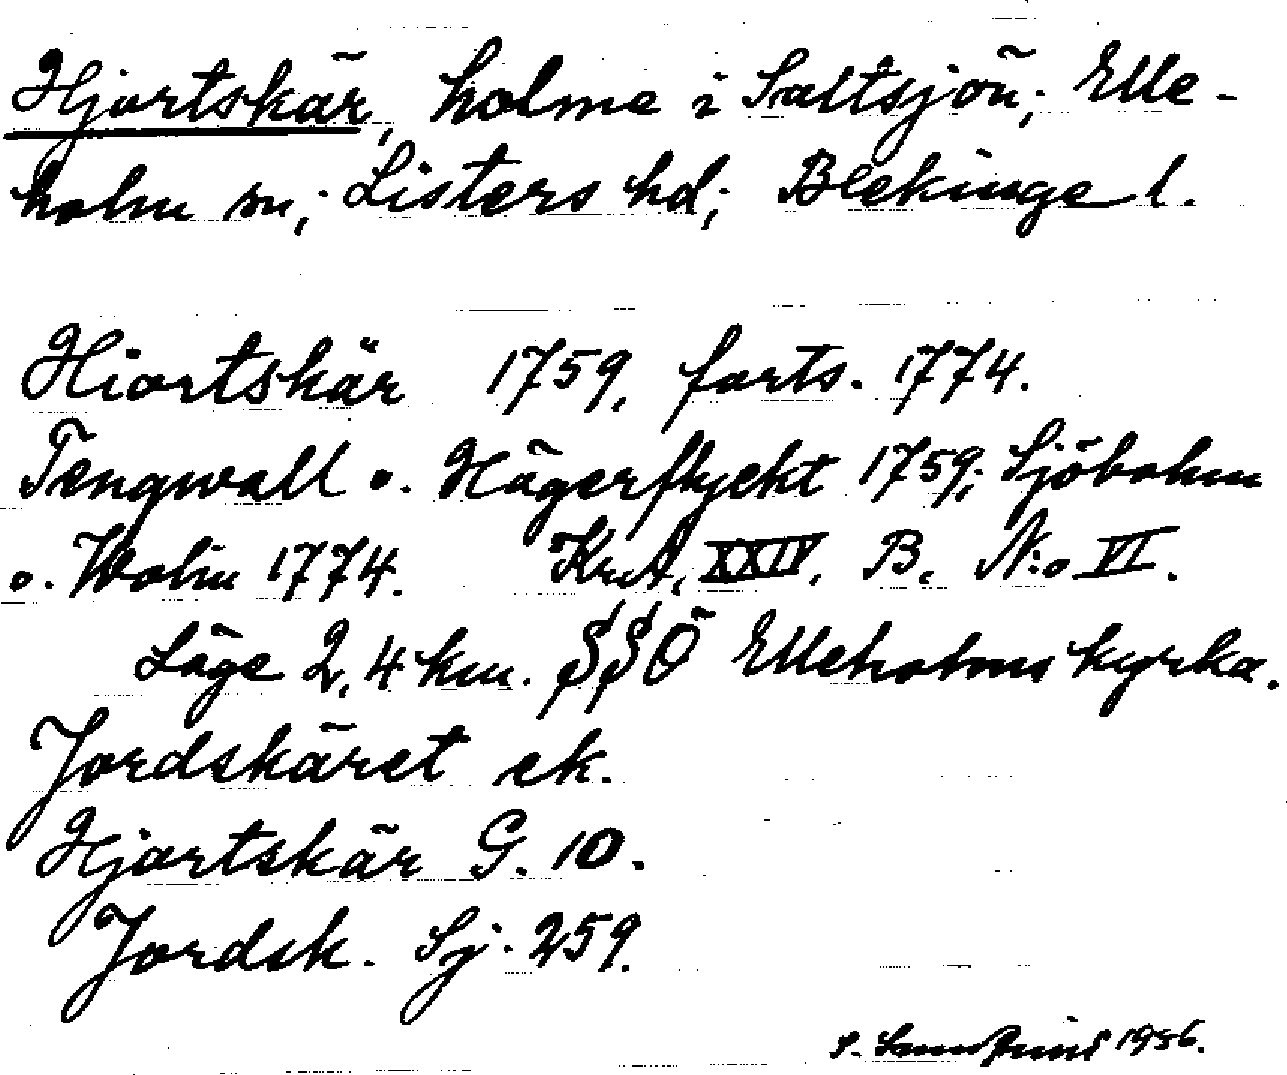 Hjortskär, holme i Saltsjön; Elle-
holm sn; Listers hd; Blekinge l.
Hiortskär 1759, forts. 1774.
Tengwall o. Hägerflyckt 1759; Sjöbohm
o. Wolin 1774. KrA, XXIV, B, N:o VI.
Läge 2,4 km. SSÖ Elleholms kyrka.
Jordskäret ek.
Hjortskär G. 10.
Jordsk. Sj. 259.
S. 1956.